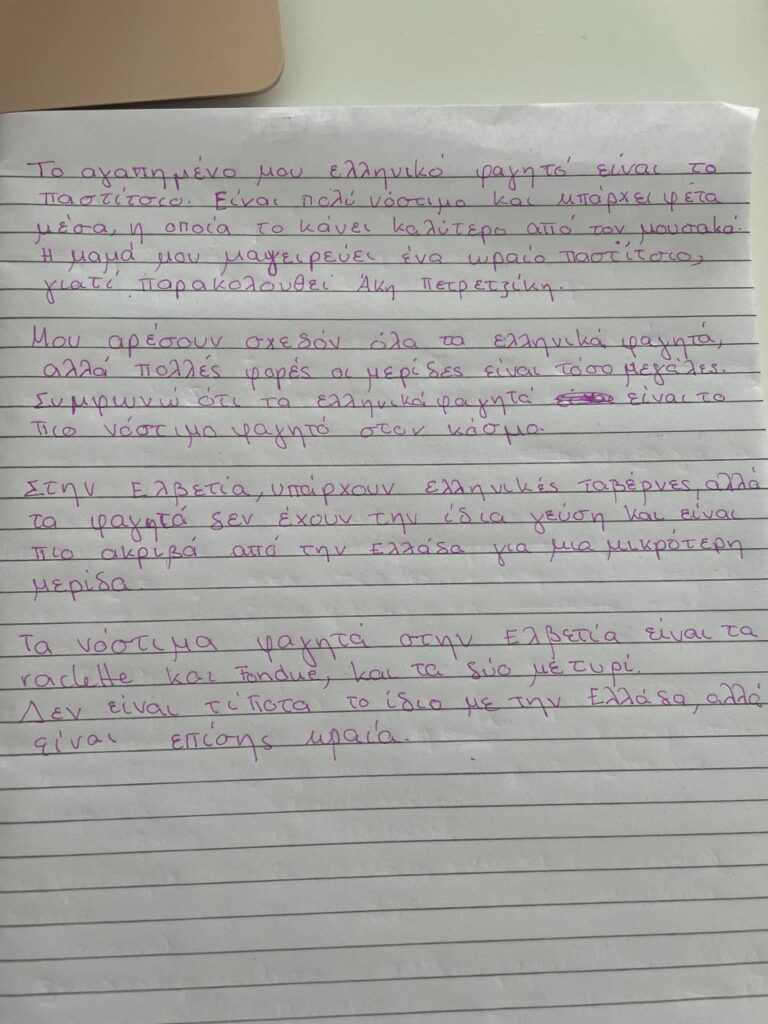 Το αγαπημένο μου ελληνικό φαγητό είναι το
παστίτσιο. Είναι πολύ νόστιμο και μπάρχει φέτα
μέσα, η οποία το κάνει καλύτερο από τον μουσακά.
Η μαμά μου μαγειρεύει ένα ωραίο παστίτσιο,
γιατί παρακολουθεί Άκη Πετρετζίκη.
Μου αρέσουν σχεδόν όλα τα ελληνικά φαγητά,
αλλά πολλές φορές οι μερίδες είναι τόσο μεγάλες.
Συμφωνώ ότι τα ελληνικά φαγητά είναι το
πιο νόστιμο φαγητό στον κόσμο.
Στην Ελβετία, υπάρχουν ελληνικές ταβέρνες, αλλά
τα φαγητά δεν έχουν την ίδια γεύση και είναι
πιο ακριβά από την Ελλάδα για μια μικρότερη
μερίδα.
Τα νόστιμα φαγητά στην Ελβετία είναι τα
raclette και Fondue, και τα δύο με τυρί.
Δεν είναι τίποτα το ίδιο με την Ελλάδα, αλλά
είναι επίσης ωραία.